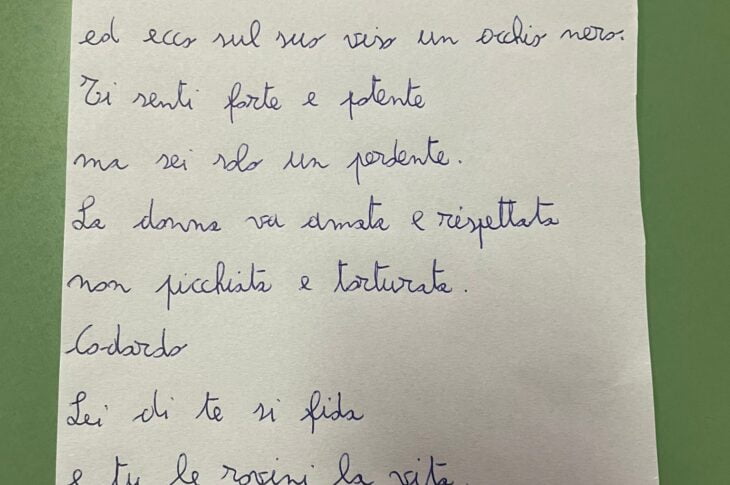 ed ecco sul suo viso un occhio nero.
Ti senti forte e potente
ma sei solo un perdente.
La donna va amata e rispettata
non picchiata e torturata.
Codardo
Lei di te si fida
e tu le rovini la vita.